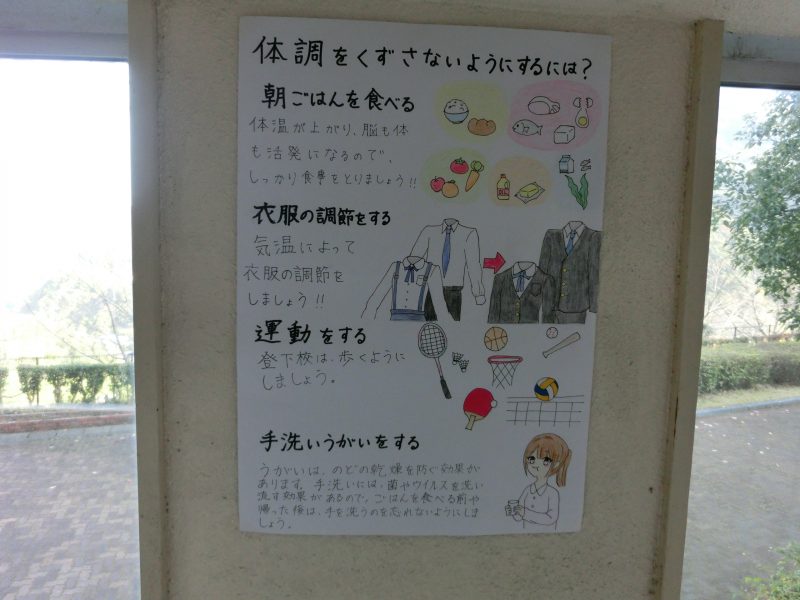 体調をくずさないようにするには?
朝ごはんを食べる
体温が上がり、脳も体
も活発になるので、
しっかり食事をとりましょう!!
衣服の調節をする
気温によって
衣服の調節を
しましょう!!
運動をする
登下校は、歩くように
しましょう。
手洗いうがいをする
うがいは、のどの乾燥を防ぐ効果が
あります。手洗いには、菌やウイルスを洗い
流す効果があるので、ごはんを食べる前や
帰った後は、手を洗うのを忘れないようにしま
しょう。